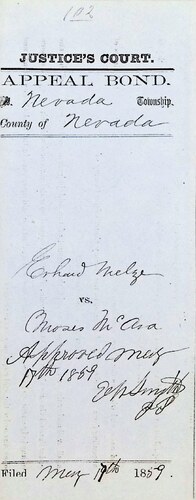 102
JUSTICE'S COURT.
APPEAL BOND.
Nevada Township.
County of Nevada
Erhard Melze
vs.
Moses McAra
Approved May
17th 1859
JP
Filed May 17th 1859.